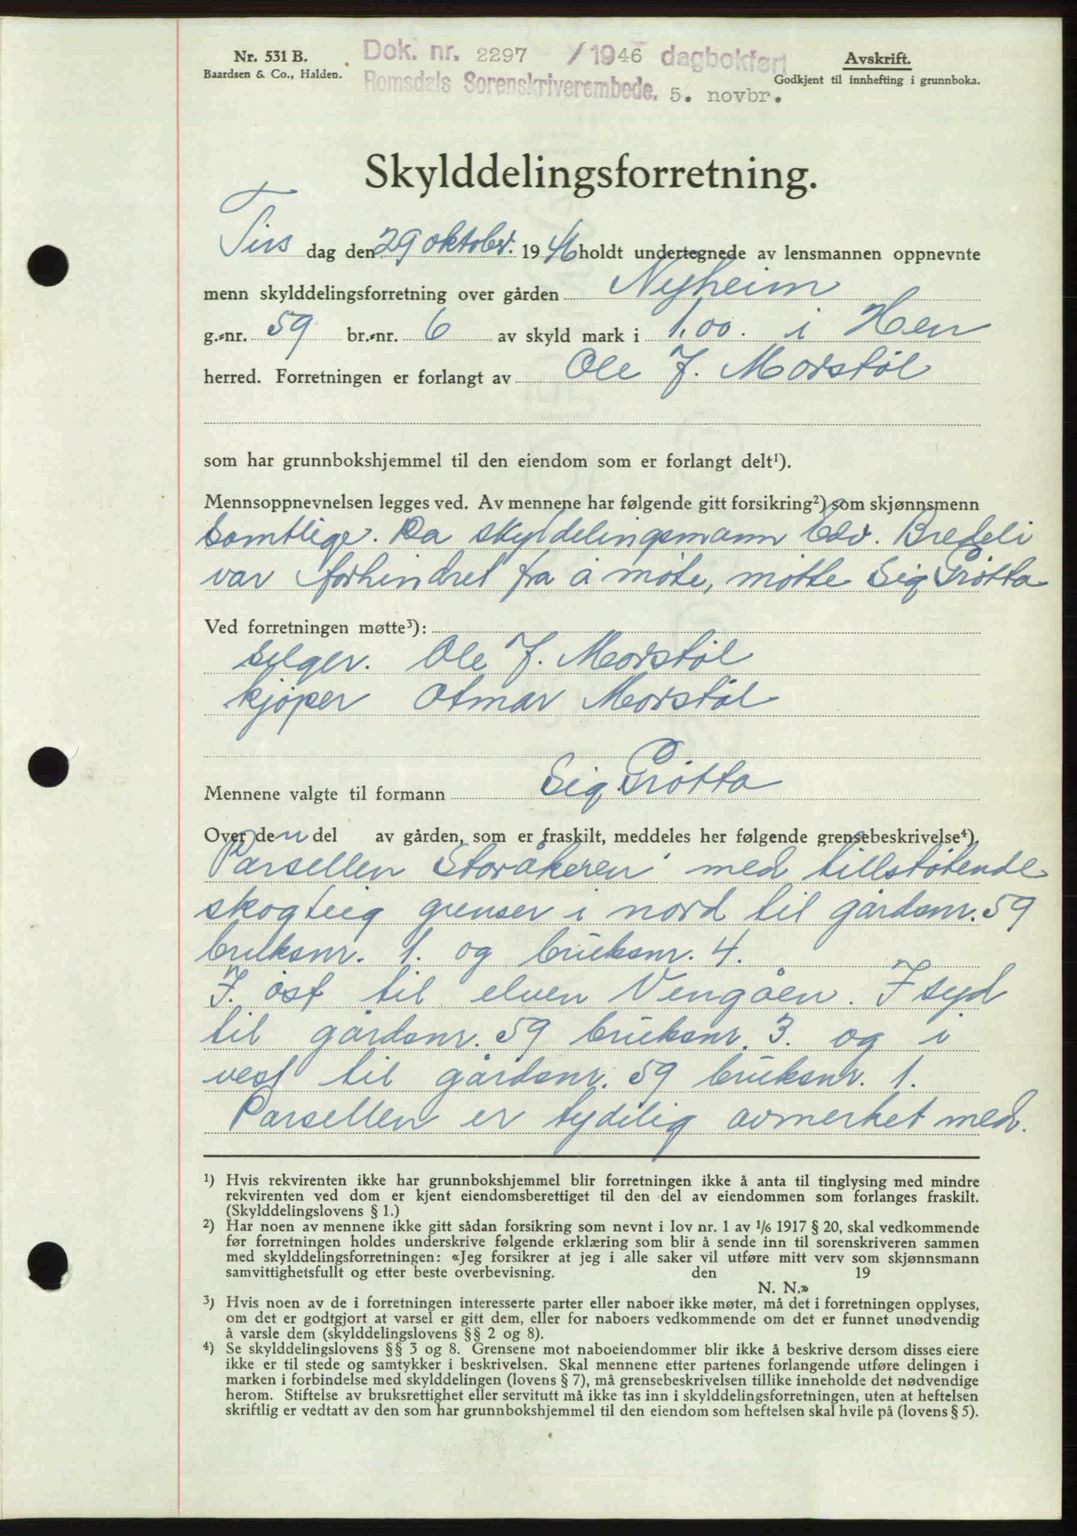 Nr. 531 B.
Baardsen & Co., Halden.
Dok. nr. 2297 / 1946 dagbokført
Romsdals Sorenskriverembede. 5. novbr.
Avskrift.
Godkjent til innhefting i grunnboka.
Skylddelingsforretning.
Tirs dag den 29 oktober. 1946 holdt undertegnede av lensmannen oppnevnte
menn skylddelingsforretning over gården Nyheim
g.-nr. 59 br.-nr. 6 av skyld mark i 1,00. i Hen
herred. Forretningen er forlangt av Ole J. Morstøl
som har grunnbokshjemmel til den eiendom som er forlangt delt¹).
Mennsoppnevnelsen legges ved. Av mennene har følgende gitt forsikring²) som skjønnsmenn
Samtlige. Da skyldelingsmann Edv. Bredeli
var forhindret fra å møte, møtte Sig Grøtta
Ved forretningen møtte³):
Selger. Ole J. Morstøl
kjøper Otmar Morstøl
Mennene valgte til formann Sig. Grøtta
Over den del av gården, som er fraskilt, meddeles her følgende grensebeskrivelse⁴),
Parsellen "Storåkeren" med tillstøtende
skogteig grenser i nord til gårdsnr. 59
bruksnr. 1. og bruksnr. 4.
I. øst til elven Vengåen. I syd
til gårdsnr. 59 bruksnr. 3. og i
vest til gårdsnr. 59 bruksnr. 1.
Parsellen er tydelig avmerket med.
¹) Hvis rekvirenten ikke har grunnbokshjemmel blir forretningen ikke å anta til tinglysing med mindre
rekvirenten ved dom er kjent eiendomsberettiget til den del av eiendommen som forlanges fraskilt.
(Skylddelingslovens § 1.)
²) Har noen av mennene ikke gitt sådan forsikring som nevnt i lov nr. 1 av 1/6 1917 § 20, skal vedkommende
før forretningen holdes underskrive følgende erklæring som blir å sende inn til sorenskriveren sammen
med skylddelingsforretningen: «Jeg forsikrer at jeg i alle saker vil utføre mitt verv som skjønnsmann
samvittighetsfullt og etter beste overbevisning. den 19
N. N.»
³) Hvis noen av de i forretningen interesserte parter eller naboer ikke møter, må det i forretningen opplyses,
om det er godtgjort at varsel er gitt dem, eller for naboers vedkommende om det er funnet unødvendig
å varsle dem (skylddelingslovens §§ 2 og 8).
⁴) Se skylddelingslovens §§ 3 og 8. Grensene mot naboeiendommer blir ikke å beskrive dersom disses eiere
ikke er til stede og samtykker i beskrivelsen. Skal mennene etter partenes forlangende utføre delingen i
marken i forbindelse med skylddelingen (lovens § 7), må grensebeskrivelsen tillike inneholde det nødvendige
herom. Stiftelse av bruksrettighet eller servitutt må ikke tas inn i skylddelingsforretningen, uten at heftelsen
skriftlig er vedtatt av den som har grunnbokshjemmel til den eiendom som heftelsen skal hvile på (lovens § 5).